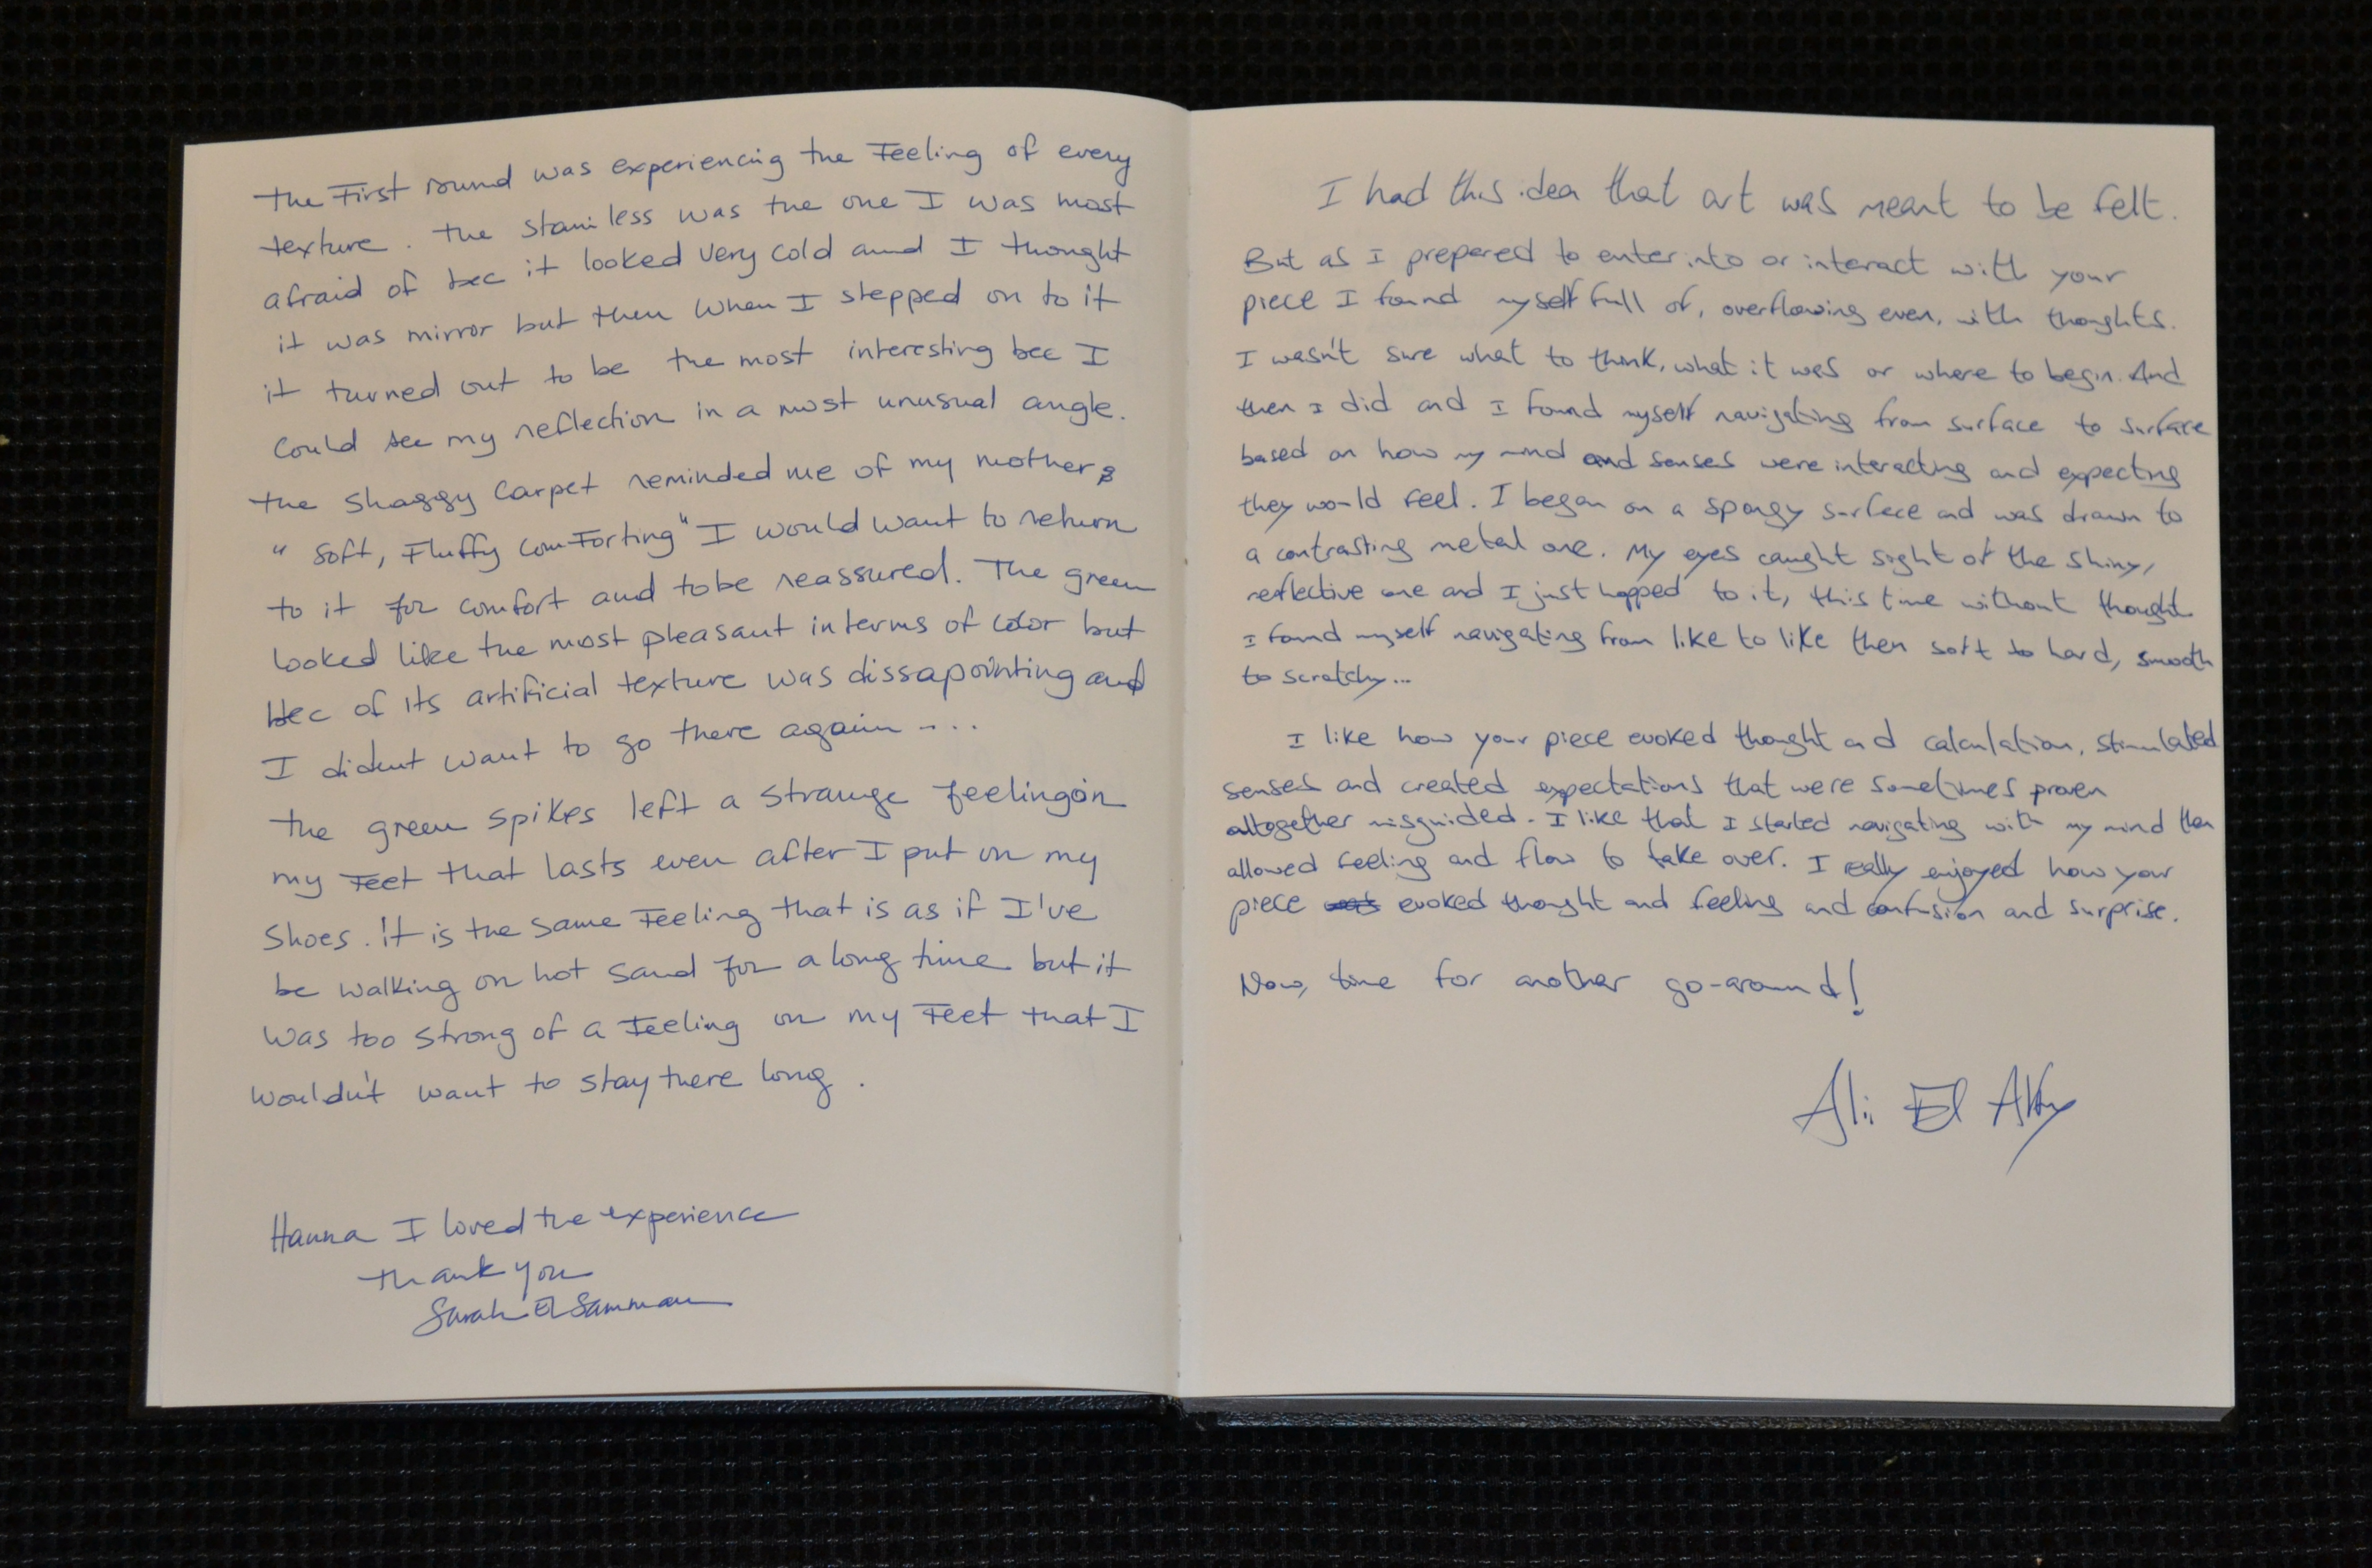 The First round was experiencing the Feeling of every
texture. The stainless was the one I was most
afraid of bec it looked very cold and I thought
it was mirror but then when I stepped on to it
it turned out to be the most interesting bec I
could see my reflection in a most unusual angle.
the shaggy carpet reminded me of my mother
"soft, Fluffy comForting" I would want to return
to it for comfort and to be reassured. The green
looked like the most pleasant in terms of color but
bec of its artificial texture was dissapointing and
I dident want to go there again ....
the green spikes left a strange feeling on
my Feet that lasts even after I put on my
shoes. It is the same Feeling that is as if I've
be walking on hot sand for a long time but it
was too strong of a Feeling on my Feet that I
wouldn't want to stay there long.
Hanna I loved the experience
thank you
Sarah El Samman
I had this idea that art was meant to be felt.
But as I prepared to enter into or interact with your
piece I found myself full of, overflowing even, with thoughts.
I wasn't sure what to think, what it was or where to begin. And
then I did and I found myself navigating from surface to surface
based on how my mind and senses were interacting and expecting
they would feel. I began on a spongy surface and was drawn to
a contrasting metal one. My eyes caught sight of the shiny,
reflective one and I just hopped to it, this time without thought
I found myself navigating from like to like then soft to hard, smooth
to scratchy...
I like how your piece evoked thought and calculation, stimulated
senses and created expectations that were sometimes proven
altogether misguided. I like that I started navigating with my mind then
allowed feeling and flow to take over. I really enjoyed how your
piece evoked thought and feeling and confusion and surprise.
Now, time for another go-around!
Ali El